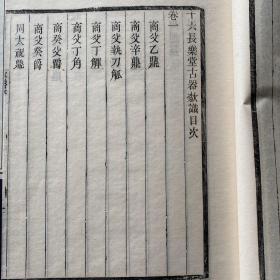 十六長樂堂古器款識目次
卷一
商父乙鼎
商父辛鼎
商父執刀觚
商父丁觶
商父丁角
商父癸爵
商父癸爵
周太祝鼎